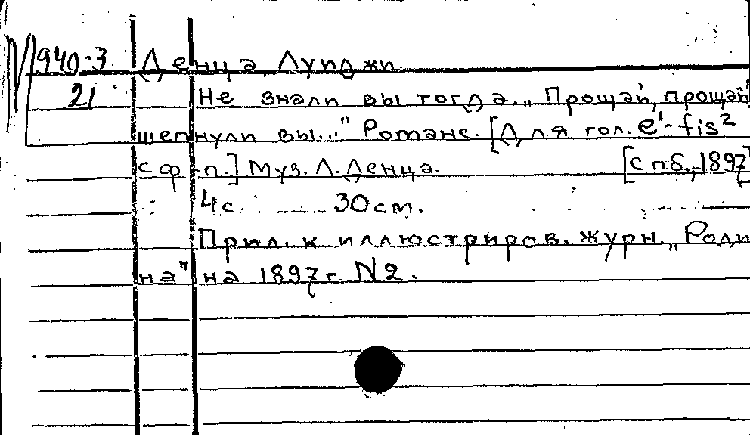 940-3 Денца, Луиджи
21 Не знали вы тогда.. „Прощай, прощай
шепнули вы..." Романс. [Для гол. e¹-fis²
с ф-п.] Муз. Л. Денца. [Спб., 1897]
4с. 30см.
Прил. к иллюстриров. журн. „Роди
на" на 1897г. N2.